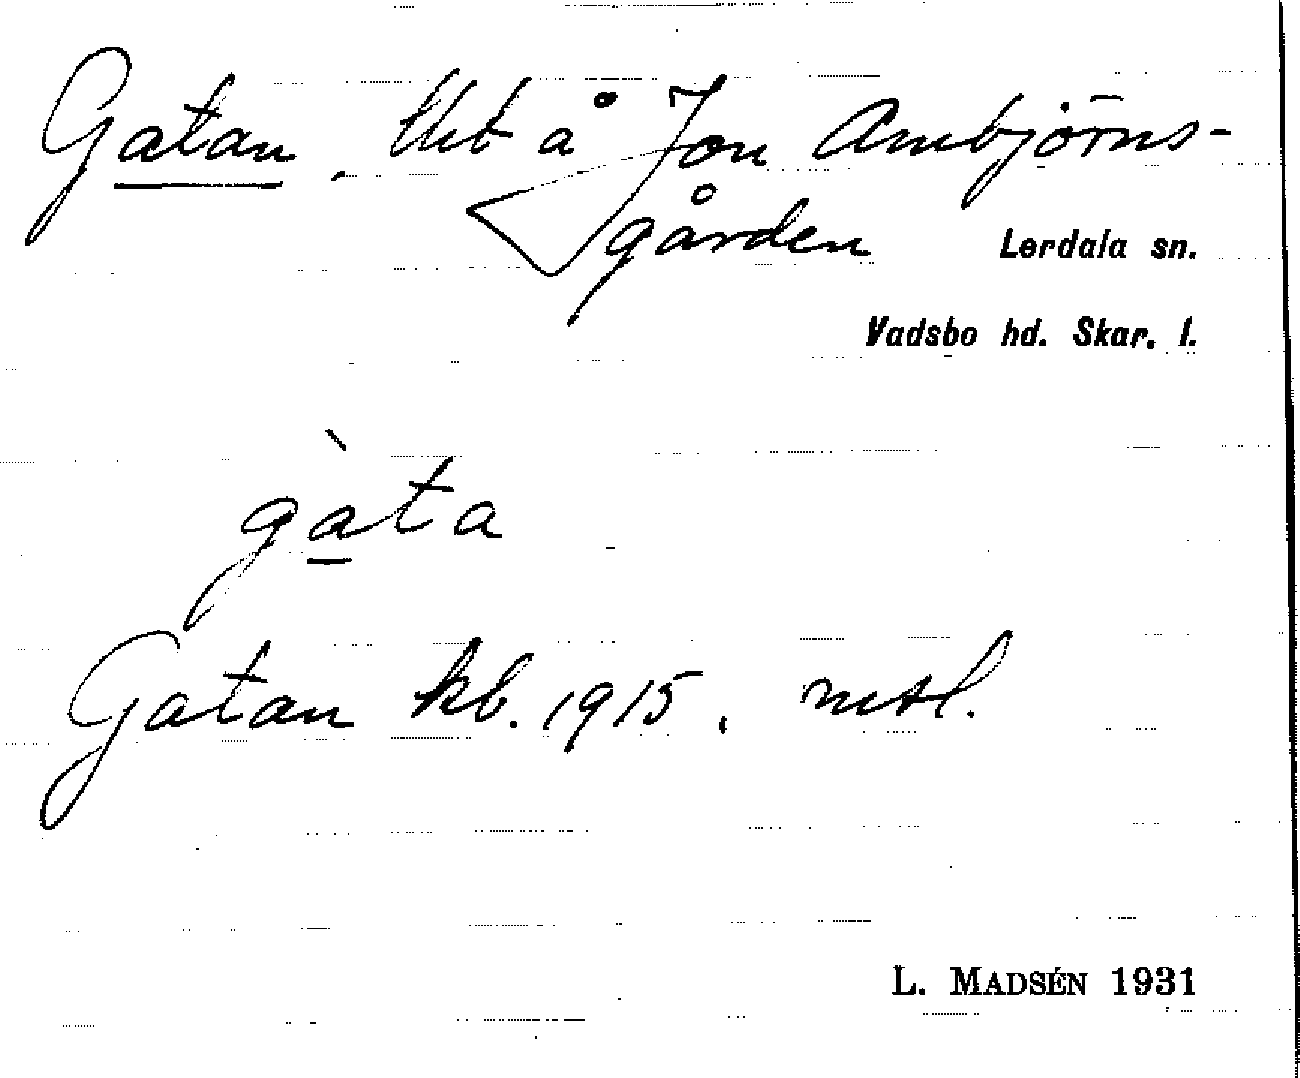 Gatan, lht å Jon Ambjörns-
gården
Lerdala sn.
Vadsbo hd. Skar. l.
gàta
Gatan kb. 1915, mtl.
L. MADSÉN 1931